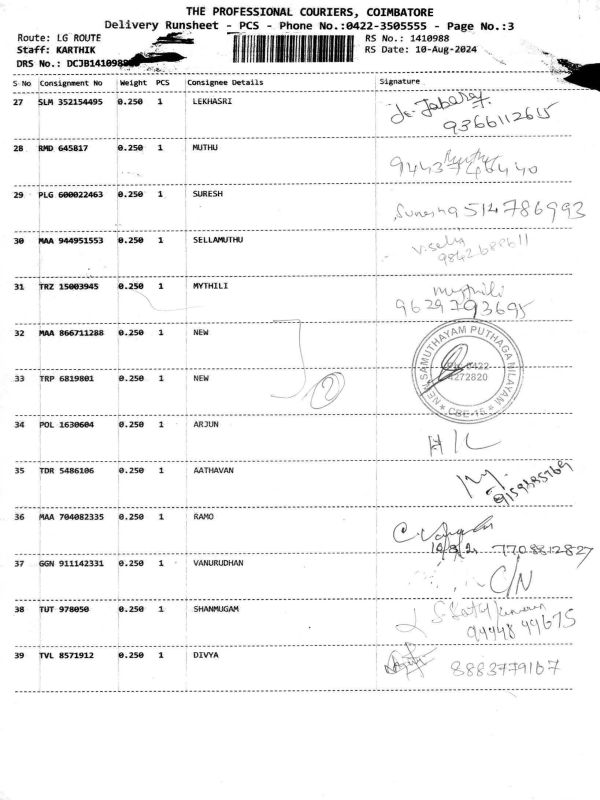 THE PROFESSIONAL COURIERS, COIMBATORE
Delivery Runsheet - PCS - Phone No.:0422-3505555 - Page No.:3
Route: LG ROUTE
RS No.: 1410988
Staff: KARTHIK
RS Date: 10-Aug-2024
DRS No.: DCJB1410988
S No Consignment No Weight PCS Consignee Details Signature
27 SLM 352154495 0.250 1 LEKHASRI
9366112615
28 RMD 645817 0.250 1 MUTHU
29 PLG 600022463 0.250 1 SURESH
Suresh 9514786993
30 MAA 944951553 0.250 1 SELLAMUTHU
31 TRZ 15003945 0.250 1 MYTHILI mythili
9629793695
32 MAA 866711288 0.250 1 NEW
33 TRP 6819801 0.250 1 NEW
NEW SAMUTHAYAM PUTHAGA NILAYAM
0422
4272820
CBE-15
34 POL 1630604 0.250 1 ARJUN
35 TDR 5486106 0.250 1 AATHAVAN
36 MAA 704082335 0.250 1 RAMO
7708812827
37 GGN 911142331 0.250 1 VANURUDHAN C/N
38 TUT 978050 0.250 1 SHANMUGAM
39 TVL 8571912 0.250 1 DIVYA 8883779167